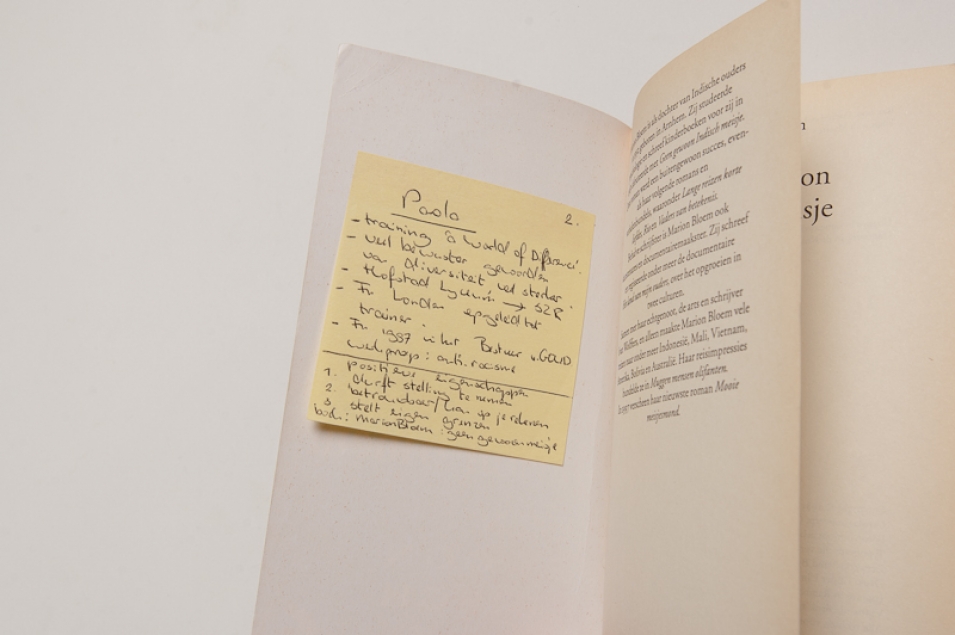 Paolo
2.
- training 'a World of Difference'.
- veel bewuster geworden
van diversiteit, veel sterker.
- Hofstad Lyceum → SZR
- In Londen opgeleid tot
trainer.
- In 1997 in het Bestuur v. GOUD
werkgroep: anti-racisme
positieve eigenschappen
1. durft stelling te nemen
2. betrouwbaar/kan op je rekenen
3. stelt eigen grenzen
boek: Marion Bloem: geen gewoon meisje
Bloem is als dochter van Indische ouders
geboren in Arnhem. Zij studeerde
en schreef kinderboeken voor zij in
met Geen gewoon Indisch meisje.
werd een buitengewoon succes, even-
als haar volgende romans en
waaronder Lange reizen korte
Rio en Vaders van betekenis.
schrijfster is Marion Bloem ook
en documentairemaakster. Zij schreef
regisseerde onder meer de documentaire
van mijn ouders, over het opgroeien in
twee culturen.
met haar echtgenoot, de arts en schrijver
Wolffers, en alleen maakte Marion Bloem vele
naar onder meer Indonesië, Mali, Vietnam,
Bolivia en Australië. Haar reisimpressies
bundelde ze in Muggen mensen olifanten.
In 1997 verscheen haar nieuwste roman Mooie
meisjesmond.
n
on
sje